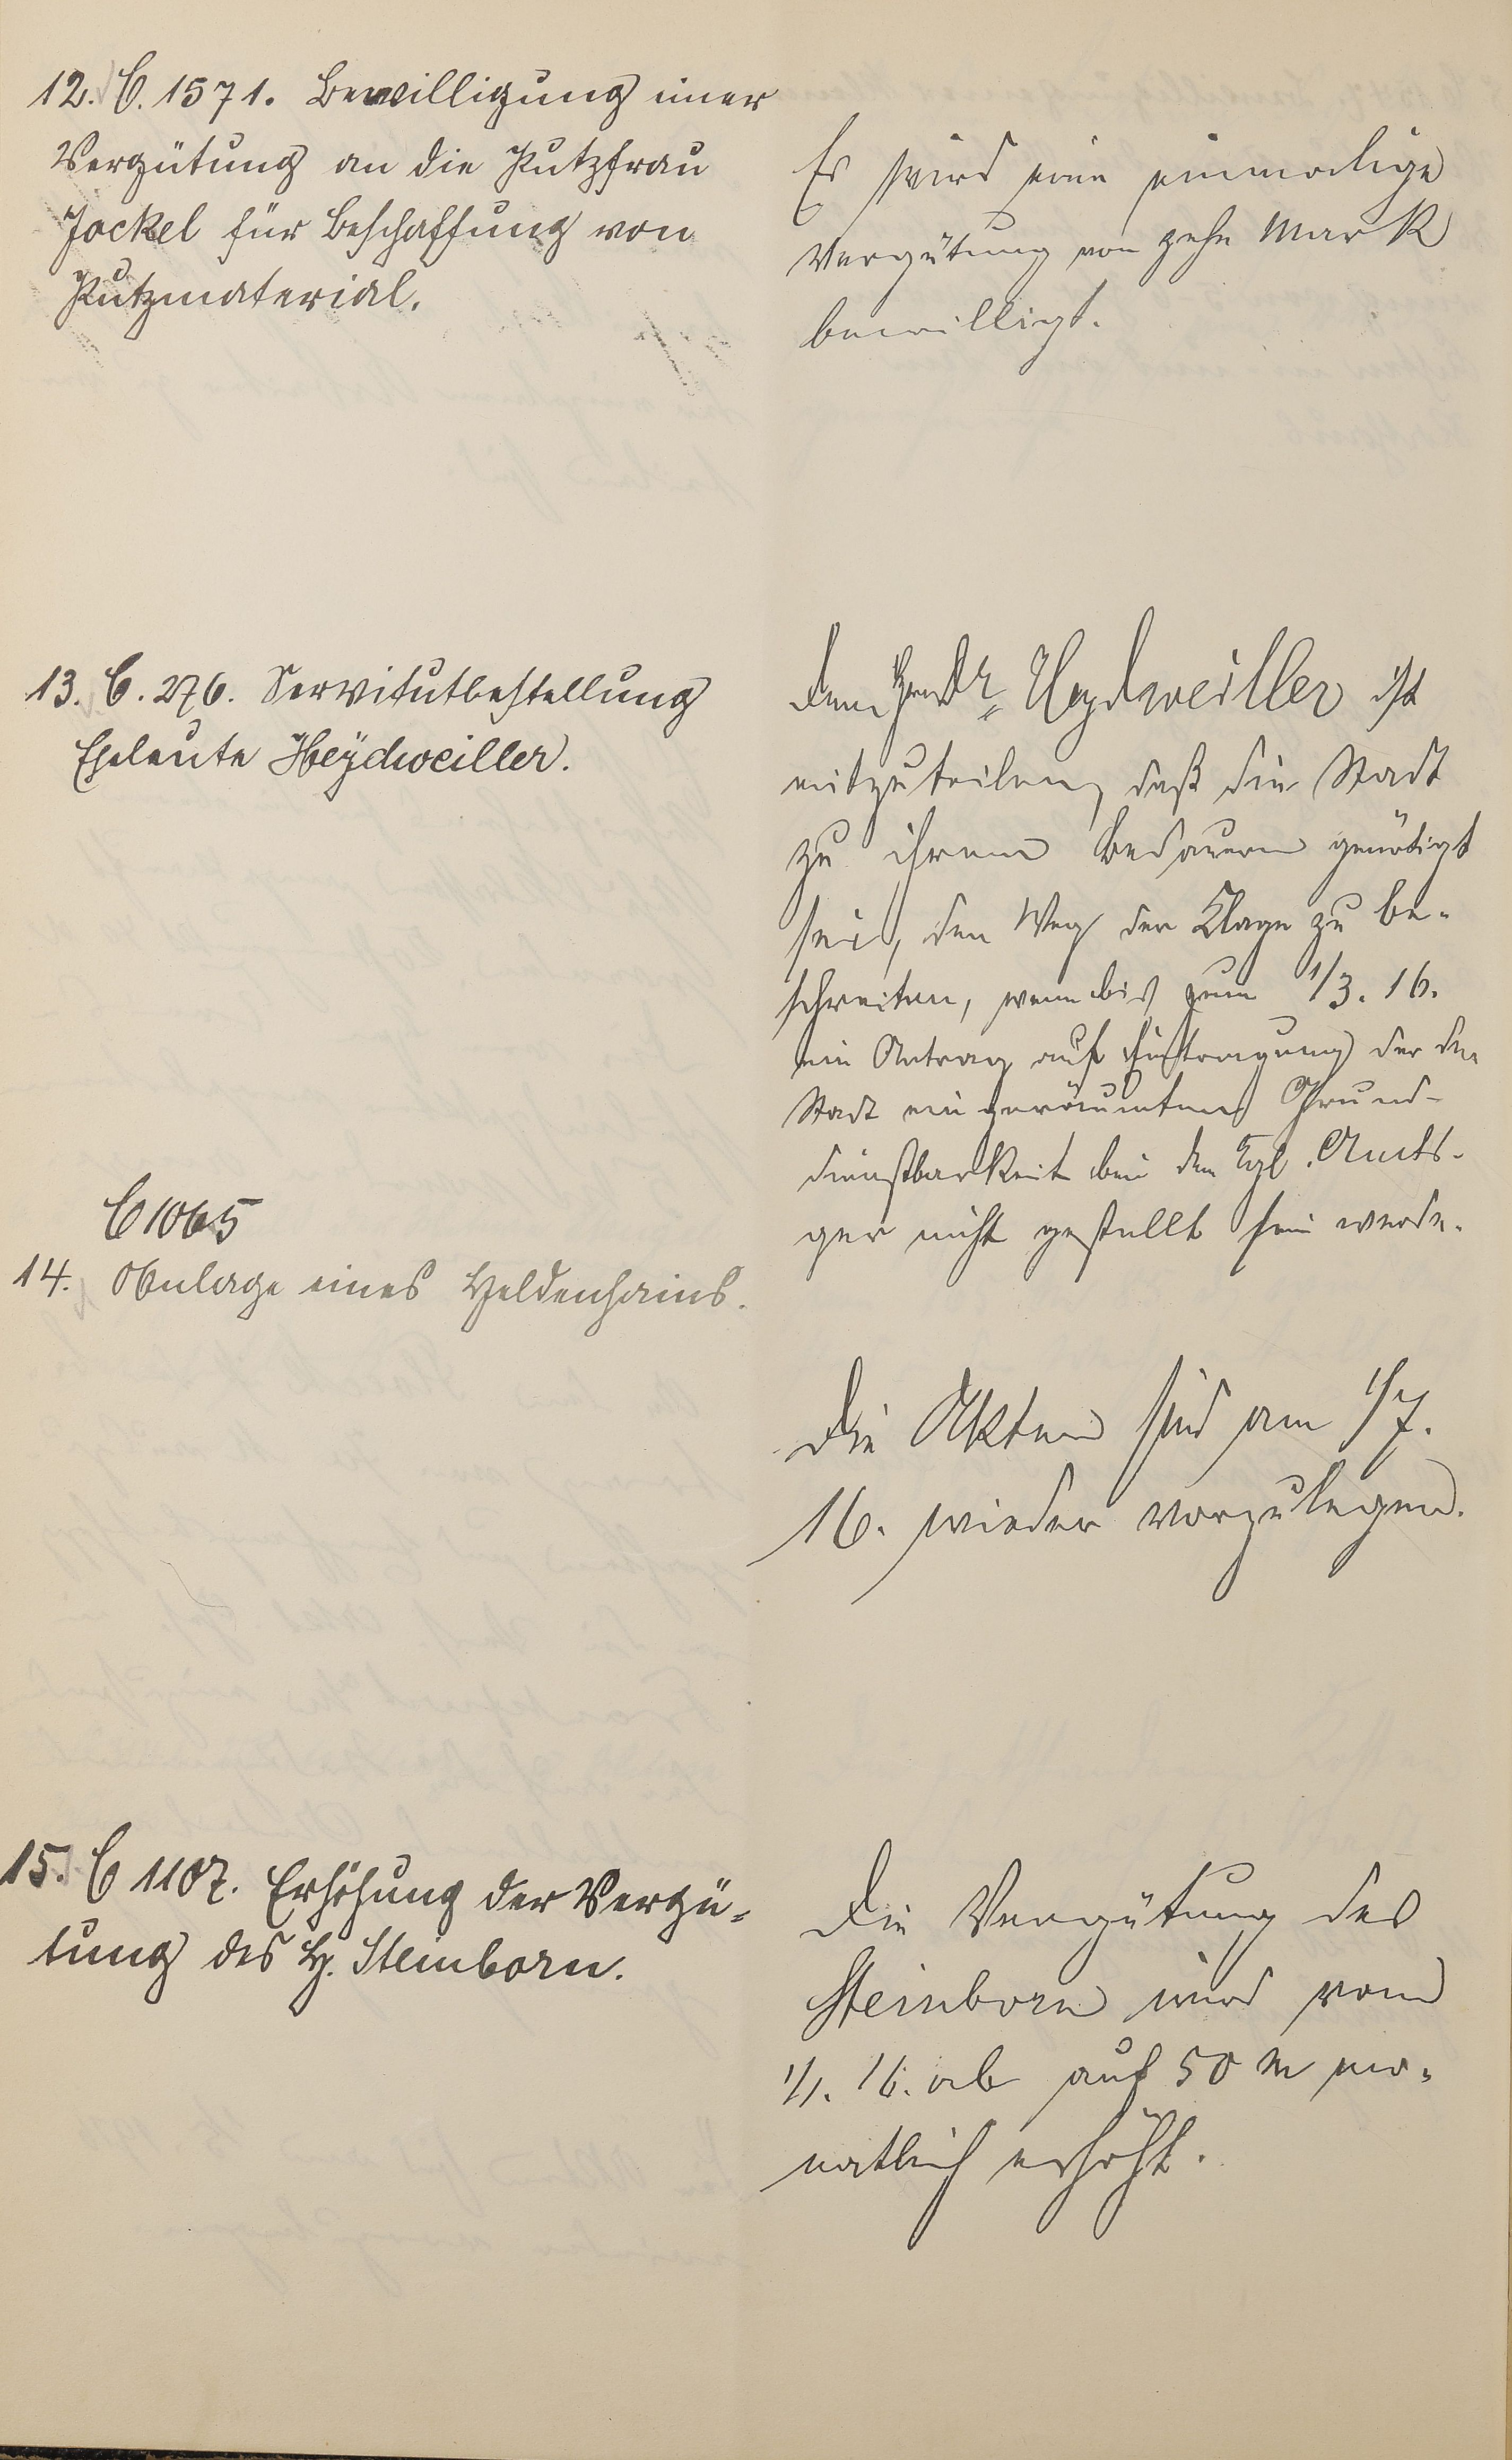 12. C. 1571. Bewilligung einer
Vergütung an die Putzfrau
Jockel für Beschaffung von
Putzmaterial.
Es wird eine einmalige
Vergütung von zehn Mark
bewilligt.
13. C. 276. Servitutbestellung
Eheleute Heydweiller.
Dem Herrn Dr. Heydweiller ist
mitzuteilen, daß die Stadt
zu ihrem Bedauern genötigt
sei, den Weg der Klage zu be-
schreiten, wenn bis zum 1/3. 16.
ein Antrag auf Eintragung der der
Stadt eingeräumten Grund-
dienstbarkeit bei dem Kgl. Amts-
ger nicht gestellt sein werde.
C 1065
14. Anlage eines Heldenhains.
Die Akten sind am 1/7.
16. wieder vorzulegen.
15. C 1107. Erhöhung der Vergü-
tung des H. Steinborn.
Die Vergütung des
Steinborn wird vom
1/1. 16. ab auf 50 M mo-
natlich erhöht.